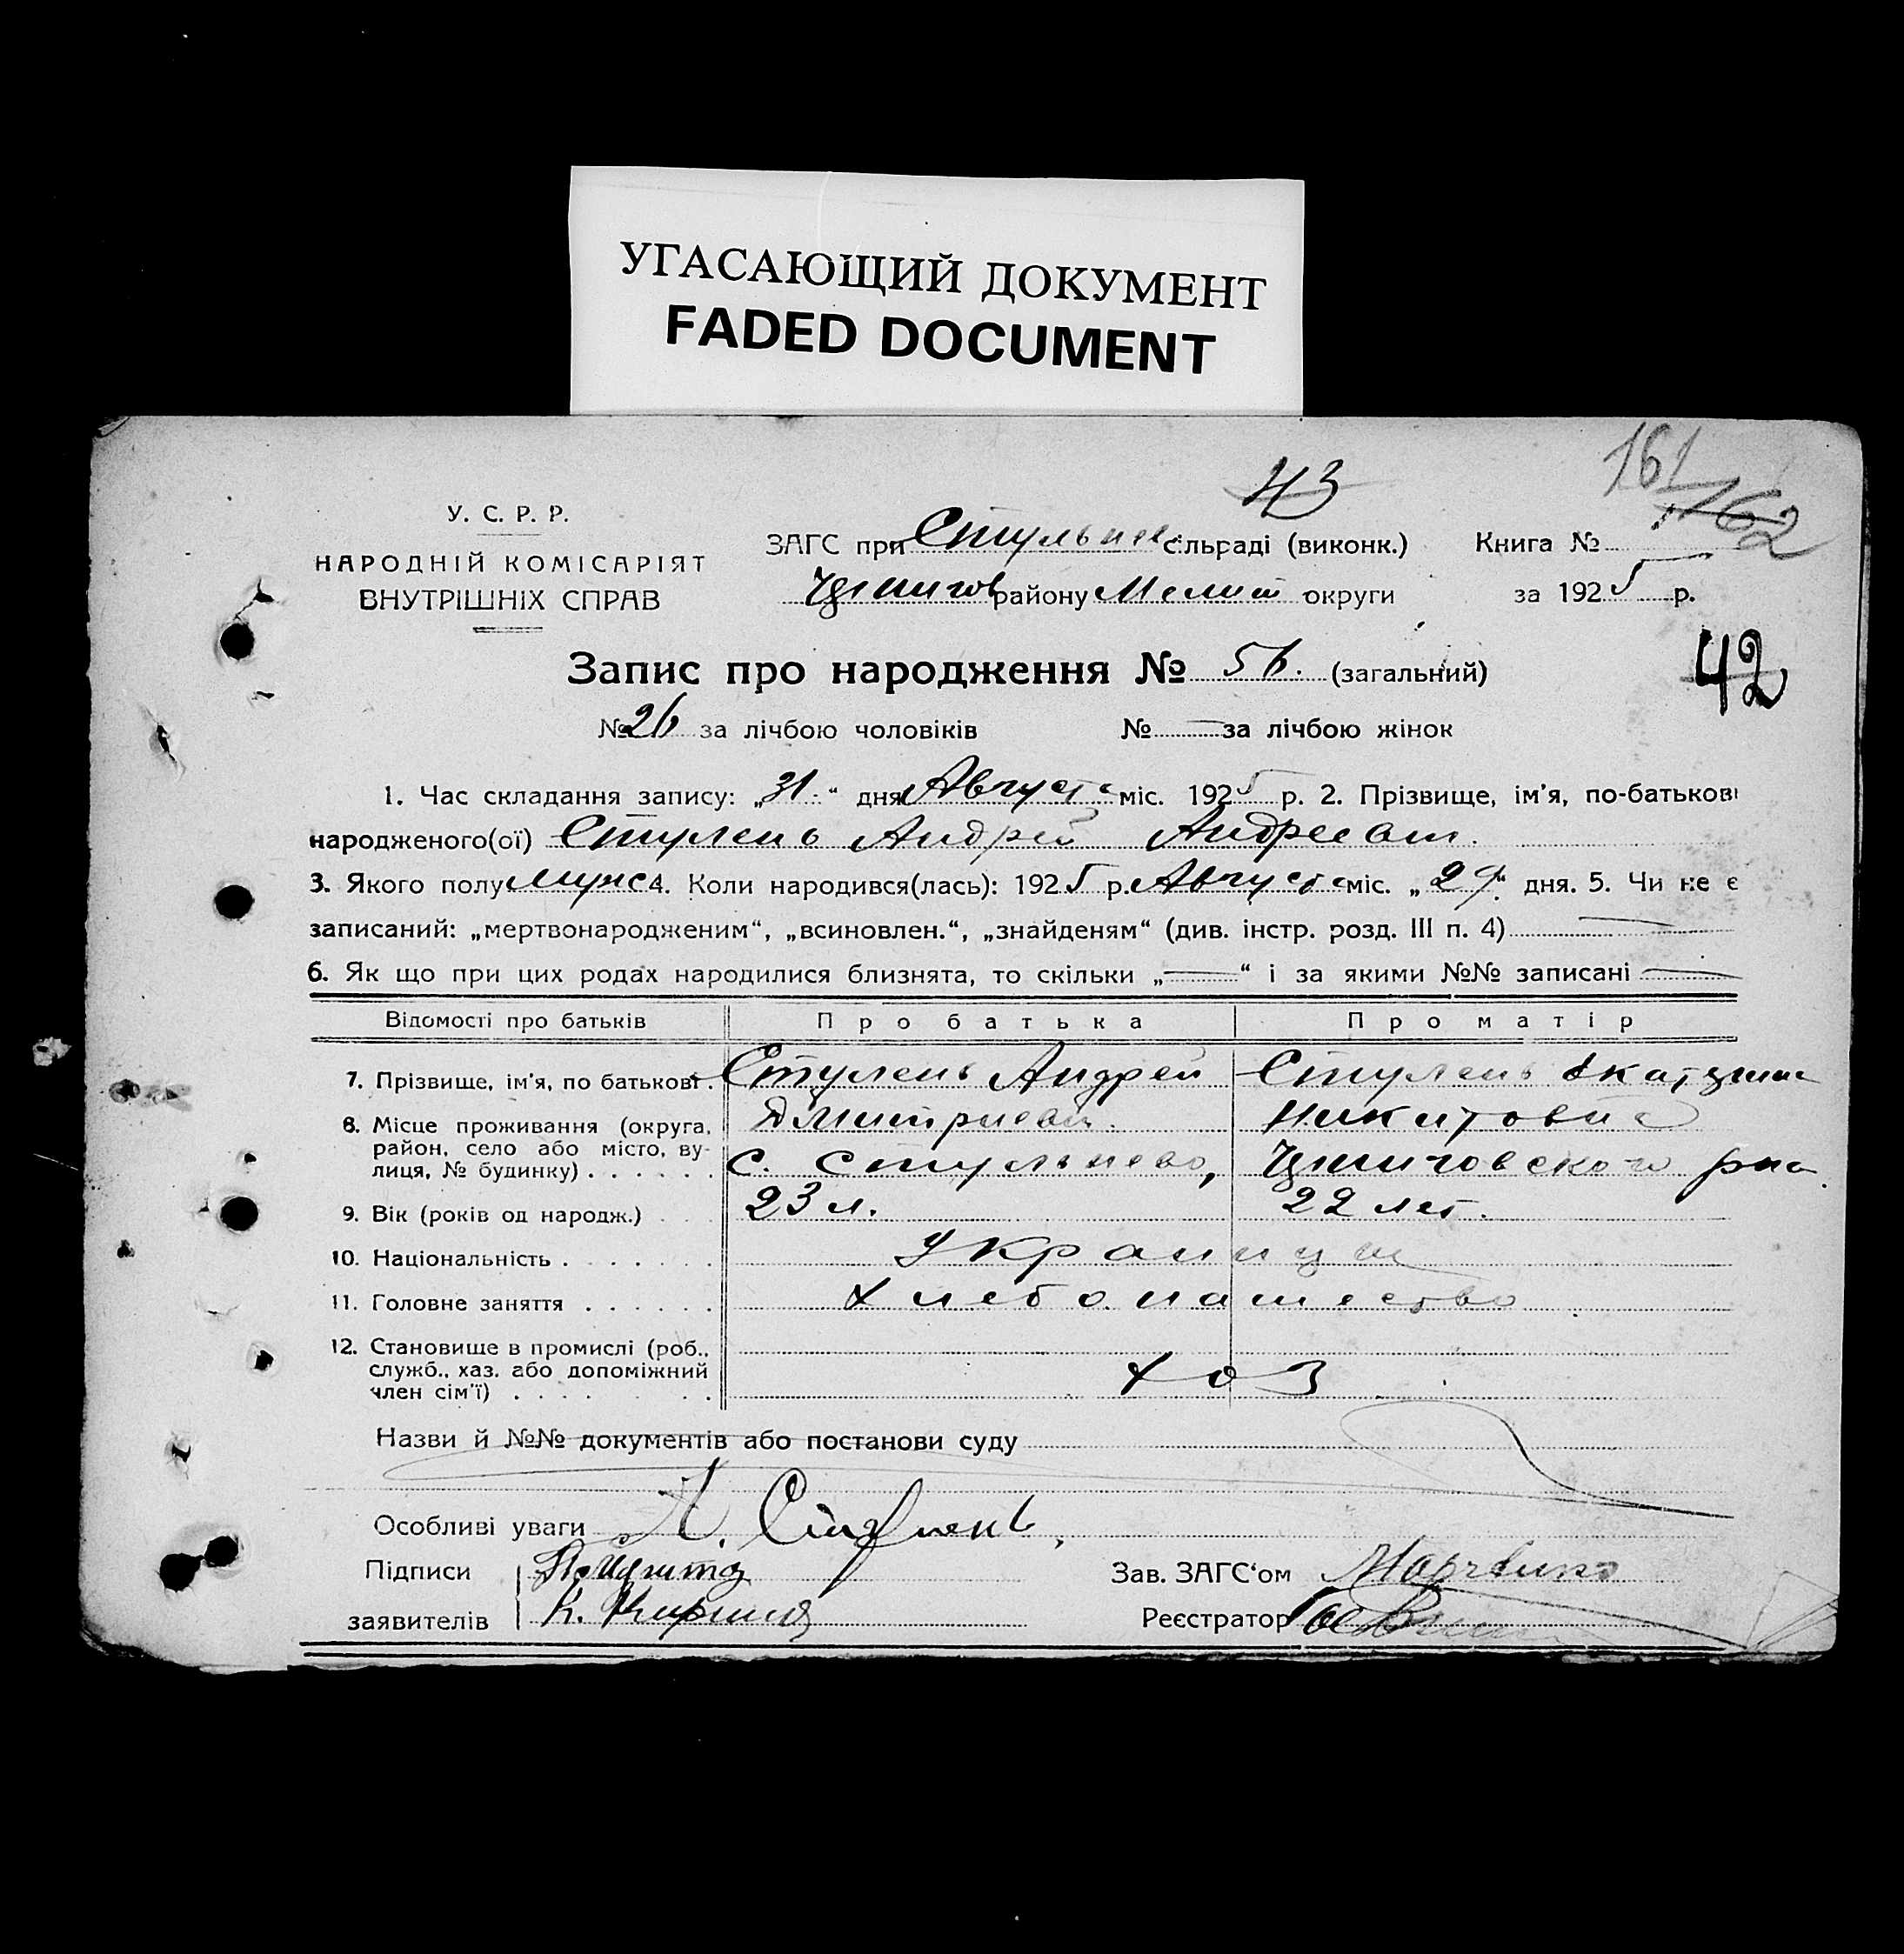 УГАСАЮЩИЙ ДОКУМЕНТ
FADED DOCUMENT
161
162
43
У. С. Р. Р.
НАРОДНІЙ КОМІСАРІЯТ
ВНУТРІШНІХ СПРАВ
ЗАГС при Стульнев сільраді (виконк.) Книга №
району Мелит округи за 1925 р.
42
Запис про народження № 56. (загальний)
№ 26 за лічбою чоловіків № — за лічбою жінок
1. Час складання запису: „31.“ дня Августа міс. 1925 р. 2. Прізвище, ім'я, по-батькові
народженого(ої) Стулень Андрей Андреевич.
3. Якого полу мужс 4. Коли народився(лась): 1925 р. Августа міс. „29.“ дня. 5. Чи не є
записаний: „мертвонародженим“, „всиновлен.“, „знайденям“ (див. інстр. розд. III п. 4) —
6. Як що при цих родах народилися близнята, то скільки „—“ і за якими №№ записані —
Відомості про батьків Про батька Про матір
7. Прізвище, ім'я, по батькові . Стулень Андрей Стулень Екатерина
8. Місце проживання (округа, Дмитриевич. Никитовна
район, село або місто, ву-
лиця, № будинку) . . . . . . с. Стульнево, Черниговского р-на
9. Вік (років од народж.) . . . 23 л. 22 лет.
10. Національність . . . . . . . Украинцы
11. Головне заняття . . . . . . Хлебопашество
12. Становище в промислі (роб.,
служб., хаз. або допоміжний
член сім'ї) . . . . . . . хоз
Назви й №№ документів або постанови суду
Особливі уваги А. Стулень
Підписи Зав. ЗАГС'ом
заявителів Реєстратор